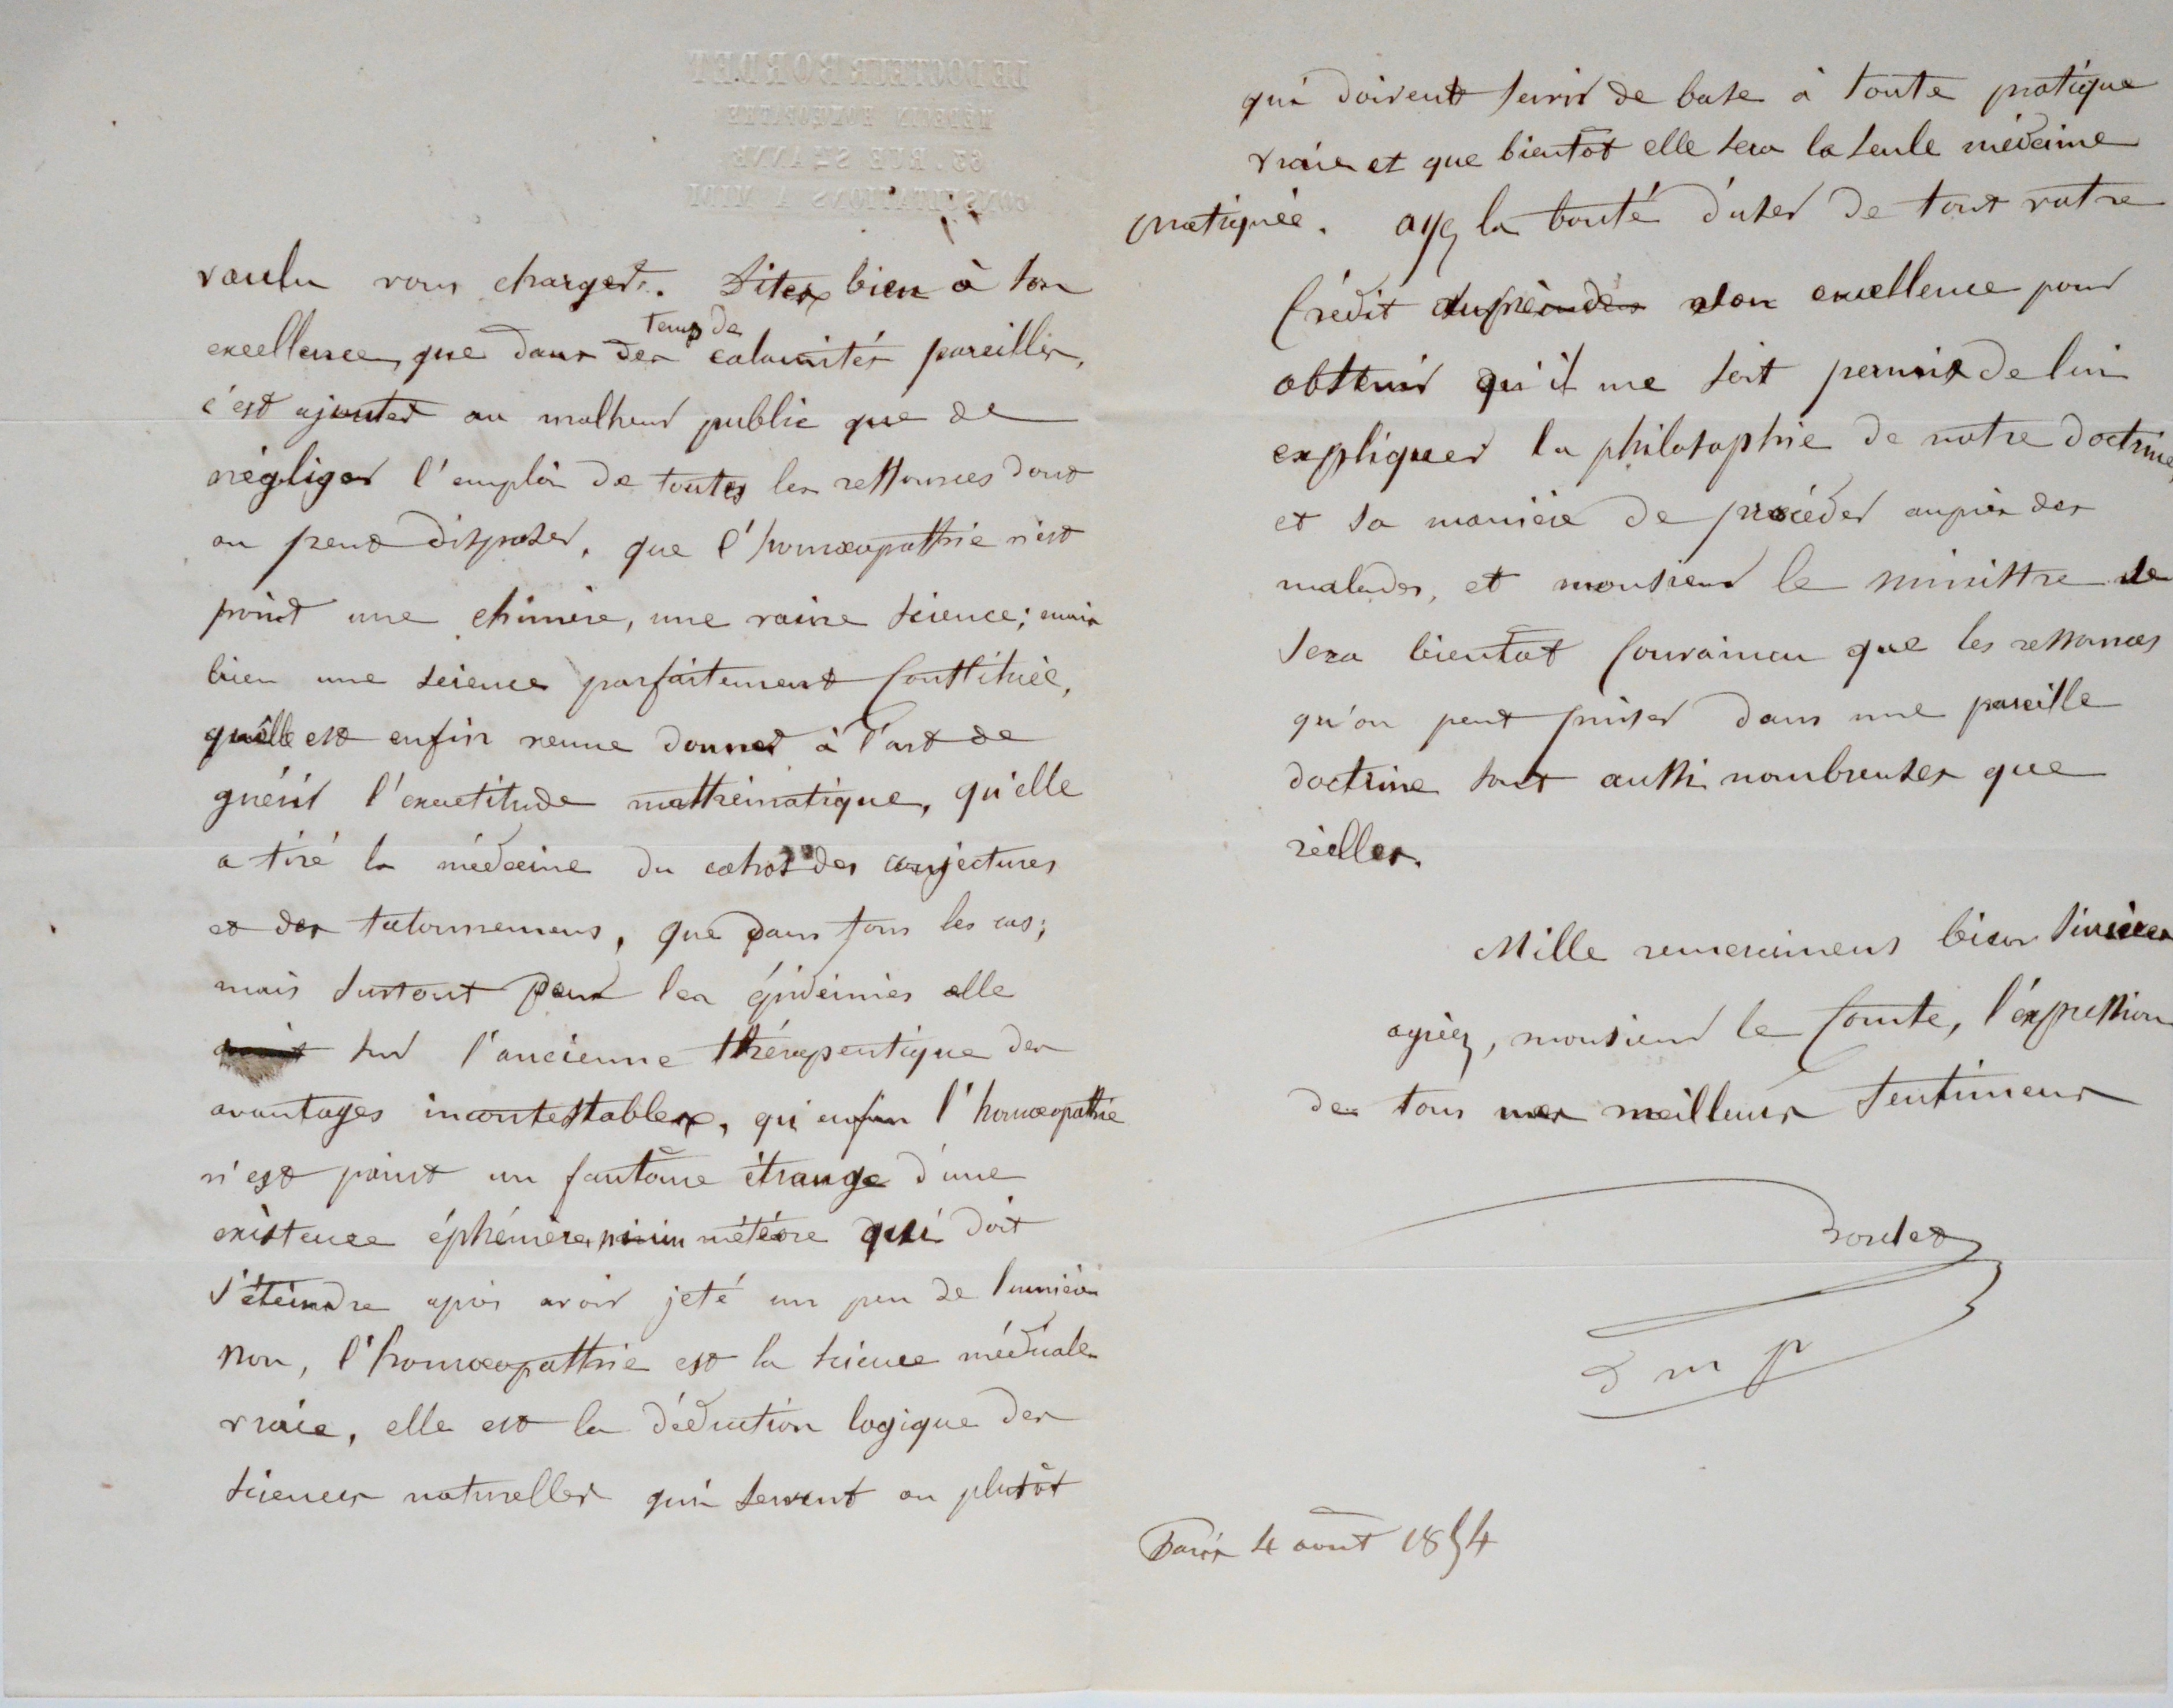 LE DOCTEUR BORDET
MÉDECIN HOMŒOPATHE
63, RUE STE ANNE
CONSULTATIONS A MIDI
voulu vous charger. Dites bien à son
temps de
excellence, que dans des calamités pareilles,
c'est ajouter au malheur public que de
négliger l'emploi de toutes les ressources dont
on peut disposer, que l'homœopathie n'est
point une chimère, une vaine science; mais
bien une science parfaitement constituée,
qu'elle est enfin venue donner à l'art de
guérir l'exactitude mathématique, qu'elle
a tiré la médecine du cahos des conjectures
et des tatonnemens, que dans tous les cas;
mais surtout pour les épidémies elle
sur l'ancienne thérapeutique des
avantages incontestables, qu'enfin l'homœopathie
n'est point un fantôme étrange d'une
existence éphémère, ni un météore qui doit
s'éteindre après avoir jeté un peu de lumière
non, l'homœopathie est la science médicale
vraie, elle est la déduction logique des
sciences naturelles qui servent ou plutôt
qui doivent servir de base à toute pratique
vraie et que bientôt elle sera la seule médecine
pratiquée. ayez la bonté d'user de tout votre
crédit son excellence pour
obtenir qu'il me soit permis de lui
expliquer la philosophie de notre doctrine,
et sa manière de procéder auprès des
malades, et monsieur le ministre
sera bientôt convaincu que les ressources
qu'on peut puiser dans une pareille
doctrine sont aussi nombreuses que
réelles.
Mille remercimens bien sincères
agréez, monsieur le Comte, l'expression
de tous mes meilleurs sentimens
Bordet
d m p
Paris 4 août 1854